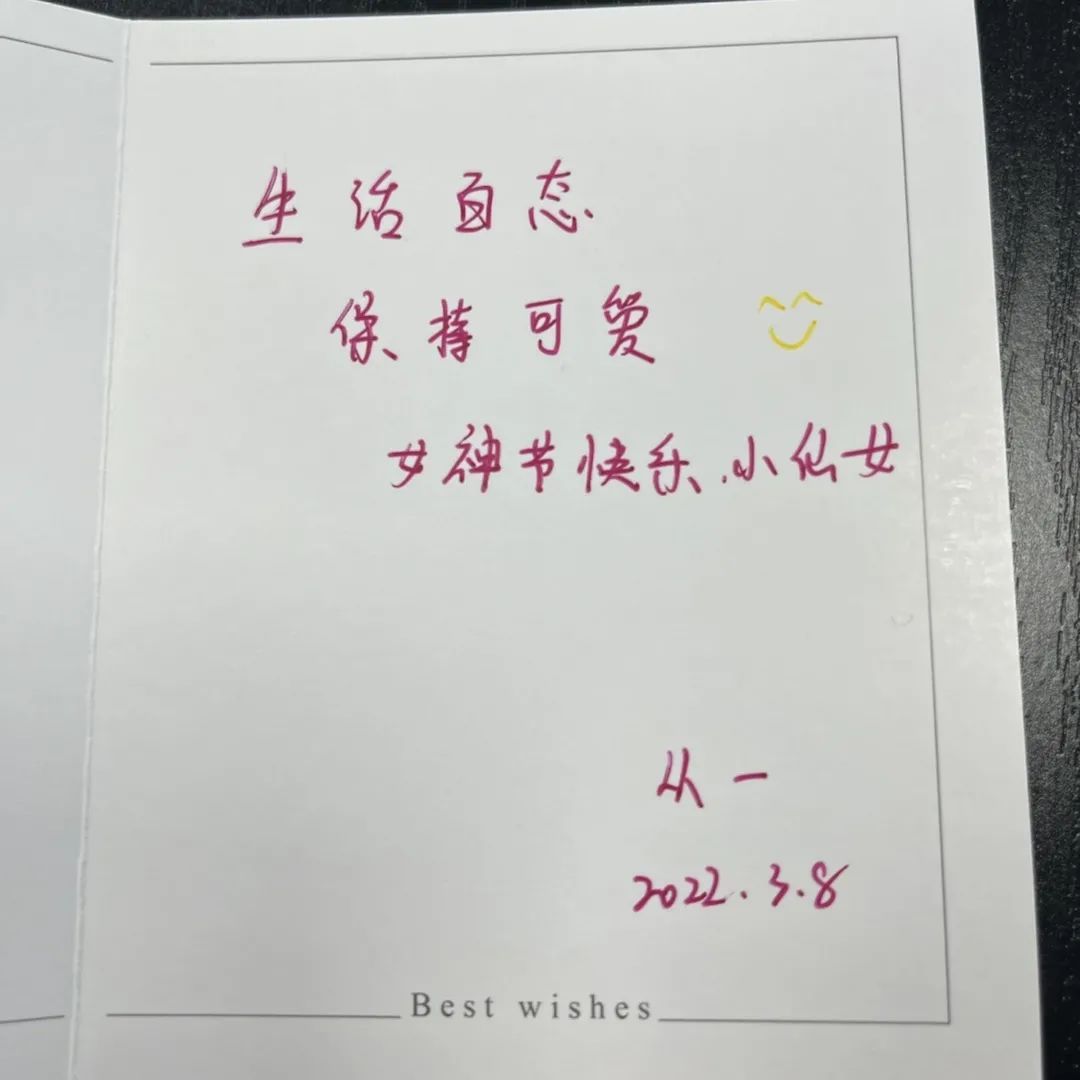 生活百态
保持可爱
女神节快乐,小仙女
从一
2022.3.8
Best wishes